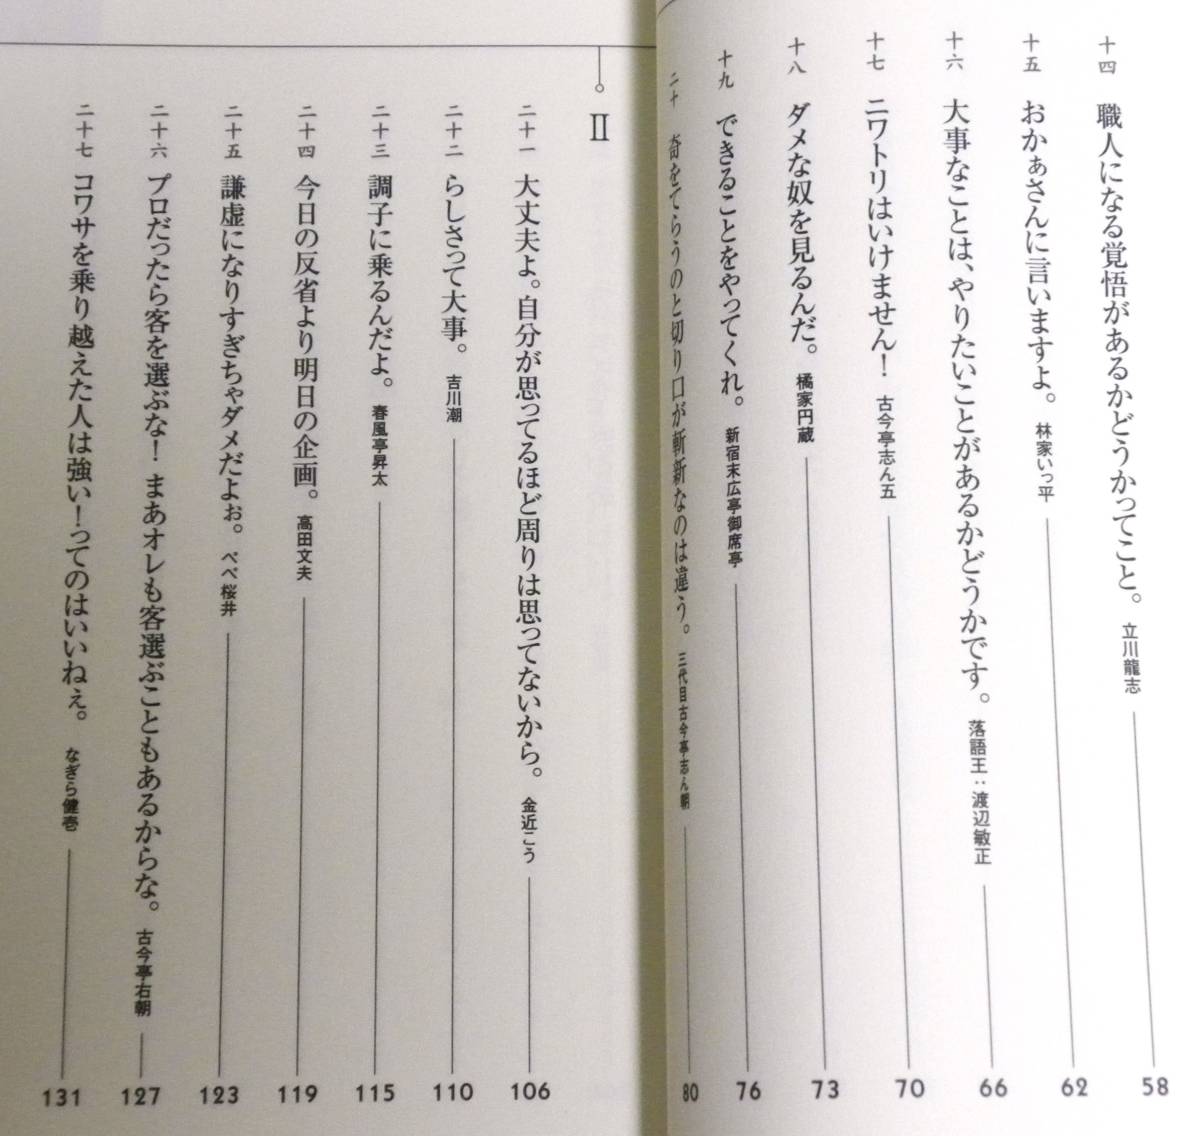 十四 職人になる覚悟があるかどうかってこと。 立川龍志 58
十五 おかぁさんに言いますよ。 林家いっ平 62
十六 大事なことは、やりたいことがあるかどうかです。 落語王:渡辺敏正 66
十七 ニワトリはいけません! 古今亭志ん五 70
十八 ダメな奴を見るんだ。 橘家円蔵 73
十九 できることをやってくれ。 新宿末広亭御席亭 76
二十 奇をてらうのと切り口が斬新なのは違う。 三代目古今亭志ん朝 80
II
二十一 大丈夫よ。自分が思ってるほど周りは思ってないから。 金近こう 106
二十二 らしさって大事。 吉川潮 110
二十三 調子に乗るんだよ。 春風亭昇太 115
二十四 今日の反省より明日の企画。 高田文夫 119
二十五 謙虚になりすぎちゃダメだよぉ。 ペペ桜井 123
二十六 プロだったら客を選ぶな! まあオレも客選ぶこともあるからな。 古今亭右朝 127
二十七 コワサを乗り越えた人は強い!ってのはいいねぇ。 なぎら健壱 131